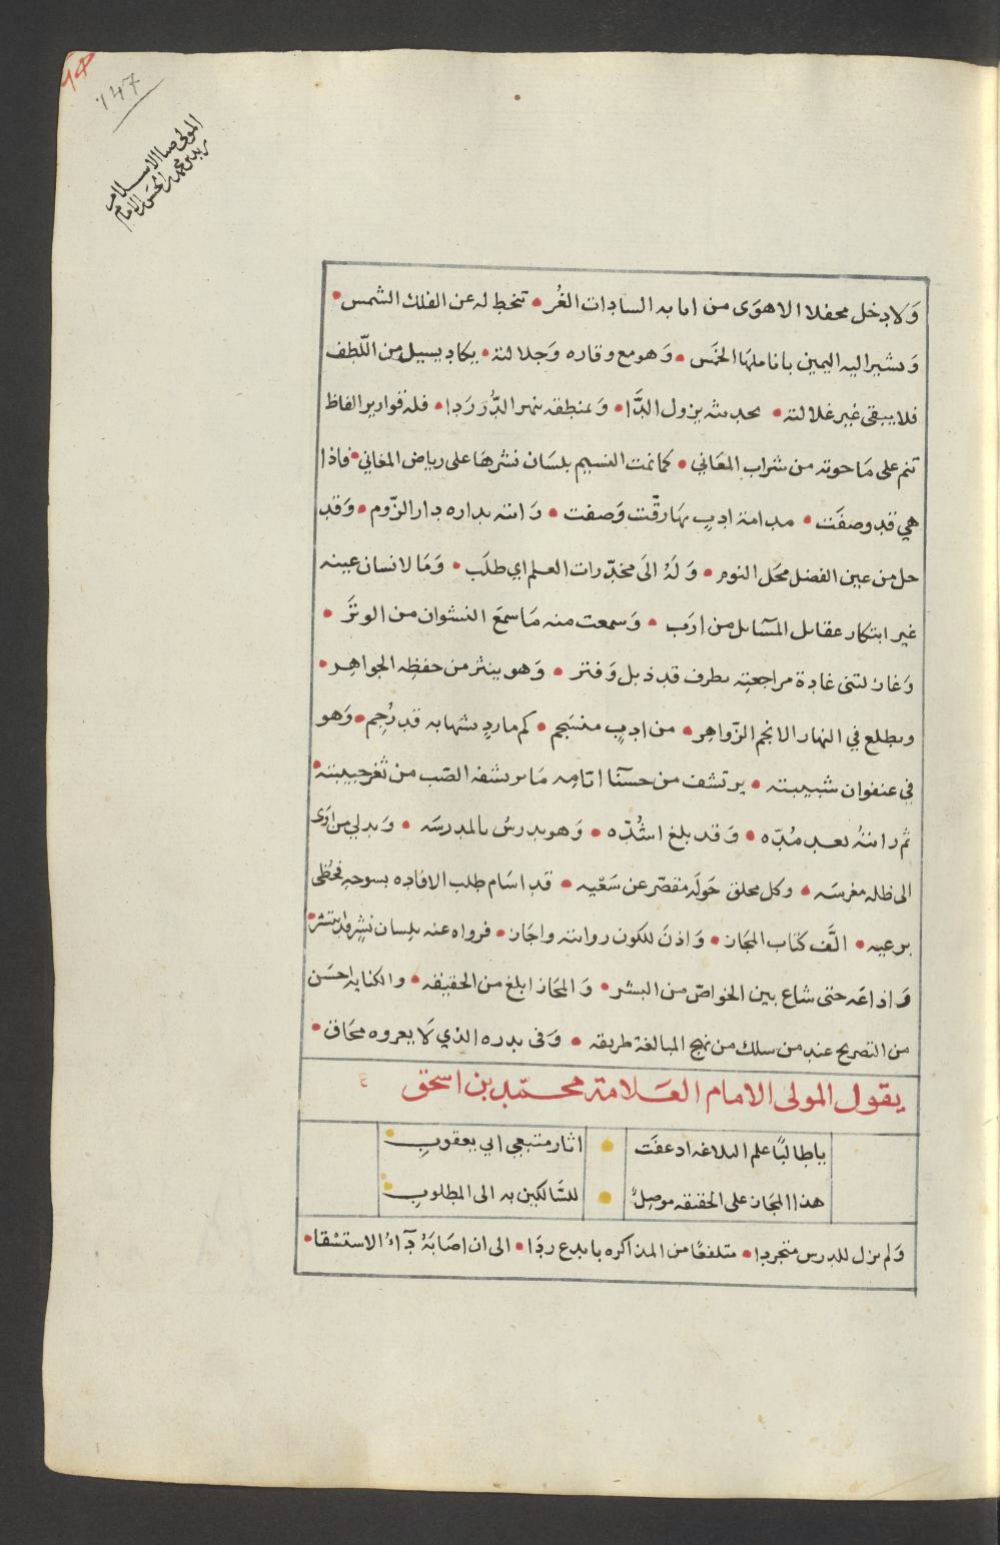 ١٤٧
المولى ضيا الاسلام
زيد بن محمد بن الحسن بن الامام
وَلا دخل محفلا الا هوَى من امابه السادات الغُر • تنحط له عن الفلك الشمس •
وَىشىر اليه اليمين بانا ملهَا الخمَس • وَهو مع وقاره وَجلالته • يكاد يسيل من اللّطف
فلا يبقى غير غلالته • ىحدىثه يزول الدَّا • وَىمنطقه ىنهر الدُّر رَدا • فله قوارير الفاظ
تنم على مَا حوته من شراب المعَاني • كما نمت النسيم بلسَان نشرهَا على رياض المغاني • فاذا
هي قد وصفَت • مدامة ادبٍ بهَا رقّت وَصفت • رَاىته بداره دار الزّوم • وَقد
حل من عين الفضل محَل النوم • وَلَهُ الَى مخدّرات العلم اي طلَب • وَمَا لانسان عينه
غير ابتكار عقاىل المسَاىل من ارَب • وَسمعت منه مَا سمعَ النشوان من الوتَر •
وَغازلتنى غادة مراجعته بطرف قد ذبل وَفتر • وَهو ينثر من حفظه الجواهِر •
وىطلع في النهار الانجم الزّواهِر • من ادبٍ منسَجم • كم ماردٍ بشهابه قد رُجِم • وَهو
في عنفوان شبيبته • يرتشف من حسَنا اىَامِه مَا ىرىشفه الصَب من ثغر حبيبته •
ثم رَاىتهُ ىعد مُدّه • وَقد بلغ اشُدّه • وَهو ىدرسُ ىالمدرسَه • وَىدلي من اوَى
الى ظله مغرسَه • وكل محلق حَولَه مقصّر عن سَعيه • قد اسَام طلب الافاده بسوحه فحُظى
برعيه • الَّف كتاب المجَاز • وَاذنَ للكون رواىته واجَاز • فرواه عنه بلِسان نشرٍ قد ىتشر •
وَاذاعَه حتى شاع بين الخواصّ من البشر • وَالمجَاز ابلغ من الحقيقه • والكنايه احسَن
من التصريح عند من سلك من نهج المبالغة طريقه • وَفى ىدره الذي لَا يعروه محَاق •
يقول المولى الامام العَلامة محمّد بن اسحق
ياطالبًا علم البلاغه اذ عفَت • اثار منتبعي ابي يعقوبِ
هذا المجَاز على الحقيقه موصِلٌ • للسَّالكين به الى المطلوبِ
وَلم ىزل للدرس متجردا • متلفعًا من المذاكره باىدع ردَا • الى ان اصَابَهُ دَآءُ الاستسقا •